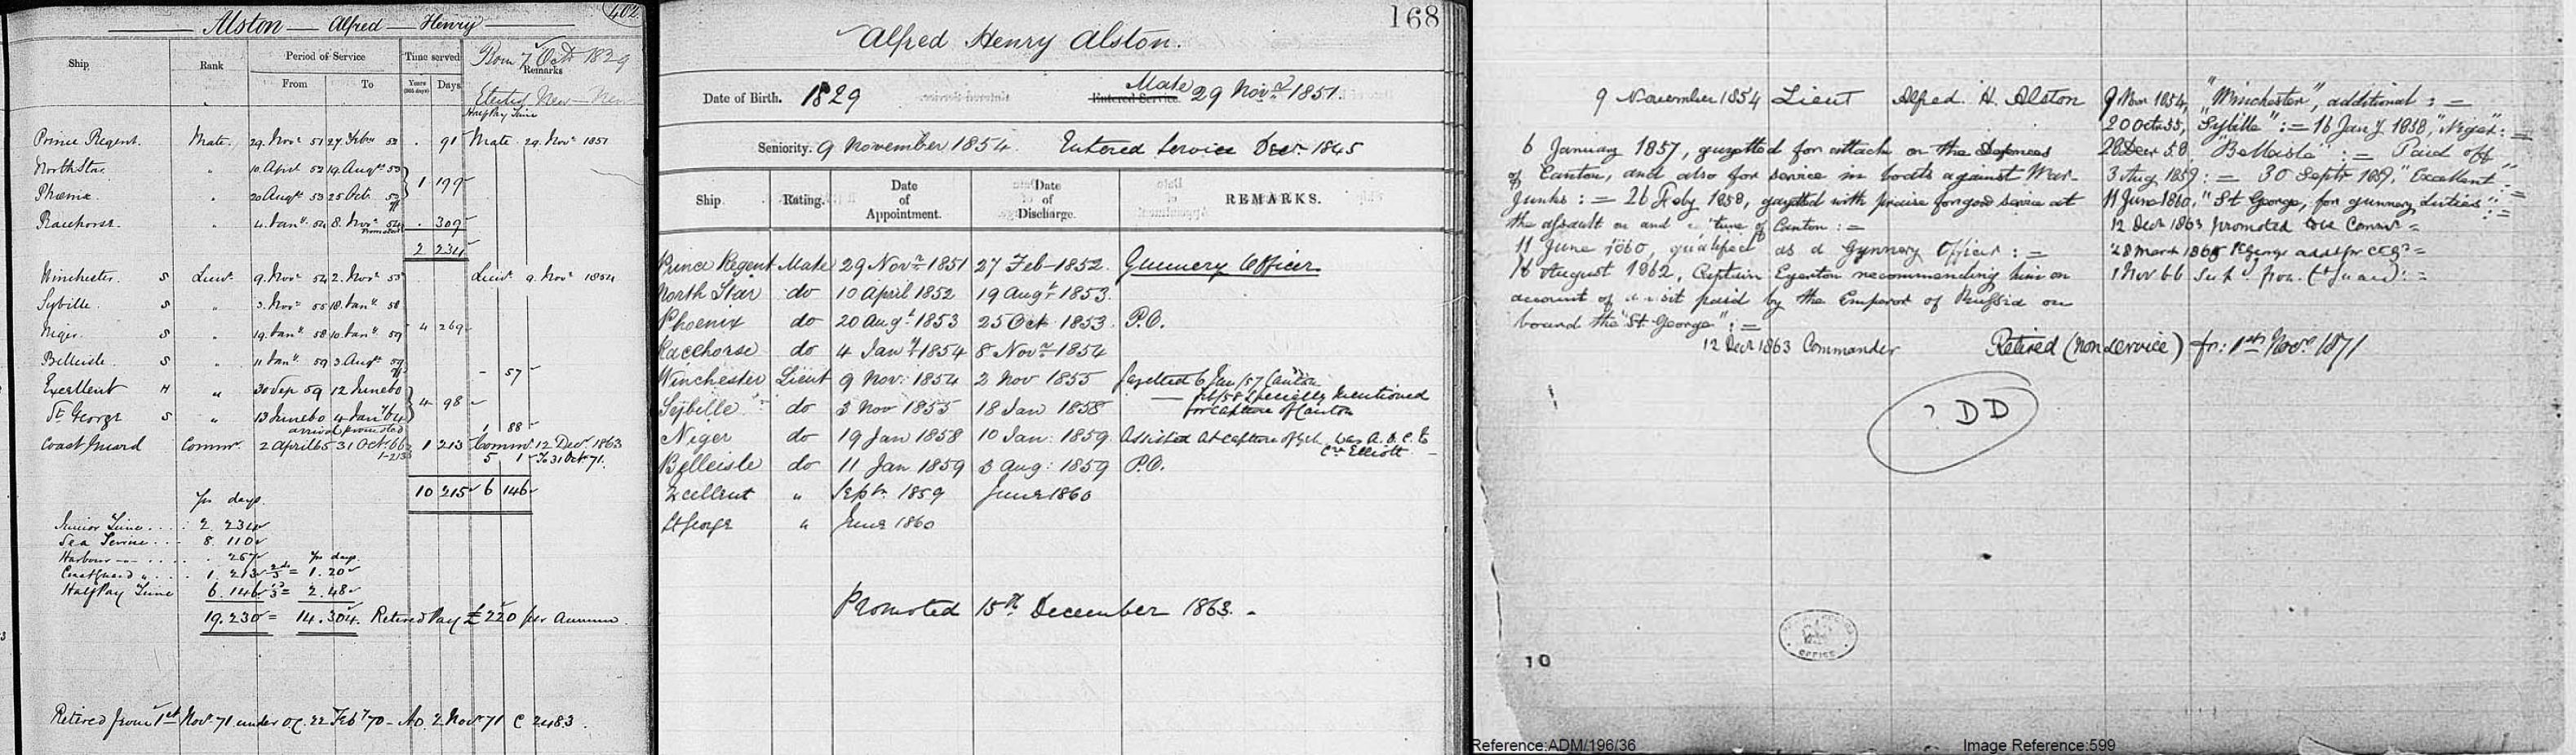 402
Alston — Alfred — Henry
Ship
Rank
Period of Service
Time served
Born 7 Octr 1829
Remarks
From
To
Years
(365 days)
Days
Half Pay Time
Prince Regent. Mate. 29. Novr 51 27 Febry 52 . 91 Mate 29. Novr 1851
North Star " 10 April 52 19. Augt 53
Phoenix " 20 Augt 53 25 Oct. 53 1 197
Racehorse " 4. Jany 54 8. Novr 54 . 309
2 234
Winchester S Lieut 9. Novr 54 2. Novr 55 Lieut 9. Novr 1854
Sybille S " 3. Novr 55 18. Jany 58
Niger. S " 19. Jany 58 10. Jany 59 4 269
Belleisle. S " 11 Jany 59 3 Augt 59
- 57
Excellent H " 30 Sep 59 12 June 60
St George S " 13 June 60 4 Jany 64 4 98
1 88
Coast Guard Commr. 2 April 65 31 Oct. 66 1 213 Commr 12 Decr 1863
5 1 To 31 Oct 71.
10 215 6 146
Yrs days
Junior Time . . . . 2. 234
Sea Service . . . 8. 110
Harbour . . . . . 257 Yrs days
Coastguard " . . . 1. 213 = 1. 20
Half Pay Time 6. 146 = 2. 48
19. 230 = 14. 304. Retired Pay £220 per Annum
Retired from 1st Novr 71 under O.C. 22 Feby 70 - Ao 2 Novr 71 C 2483.
168
Alfred Henry Alston.
Date of Birth. 1829 Entered Service Mate 29 Novr 1851.
Seniority. 9 November 1854. Entered Service Decr 1845
Ship. Rating. Date of Appointment. Date of Discharge. REMARKS.
Prince Regent Mate 29 Novr 1851 27 Feb- 1852. Gunnery Officer
North Star do 10 April 1852 19 Augt 1853.
Phoenix do 20 Augt 1853 25 Oct 1853. P.O.
Racehorse do 4 Jany 1854 8 Novr 1854
Winchester Lieut 9 Nov: 1854 2 Nov 1855 Gazetted 6 Jan/57 Canton
Sybille do 3 Nov 1855 18 Jan 1858 — Feb/58 Specially mentioned
for capture of Canton
Niger do 19 Jan 1858 10 Jan: 1859. Assisted at capture of was A.D.C. to
Cre Elliott
Belleisle do 11 Jan 1859 3 Aug: 1859 P.O.
Excellent " Septr 1859 June 1860
St George " June 1860
Promoted 15th December 1863. -
9 November 1854 Lieut Alfred. H. Alston 9 Nov 1854, "Winchester", additional : =
20 Oct 55, "Sybille" : = 16 Jany 1858, "Niger" : =
6 January 1857, gazetted for attack on the Defences 28 Decr 58. "Belleisle" : = Paid off
of Canton, and also for service in boats against War- 3 Aug 1859 : = 30 Septr 1859, "Excellent" : =
Junks : = 26 Feby 1858, gazetted with praise for good service at 11 June 1860, "St George, for gunnery duties" : =
the assault on and capture of Canton : = 12 Decr 1863 promoted
11 June 1860, qualified as a Gunnery Officer : = 28 March 1865
16 August 1862, Captain Egerton recommending him on 1 Nov 66
account of a visit paid by the Emperor of Russia on
bound the "St George" : =
12 Decr 1863 Commander Retired (non service) fr: 1st Novr 1871
? DD
OFFICE
10
Reference:ADM/196/36
Image Reference:599